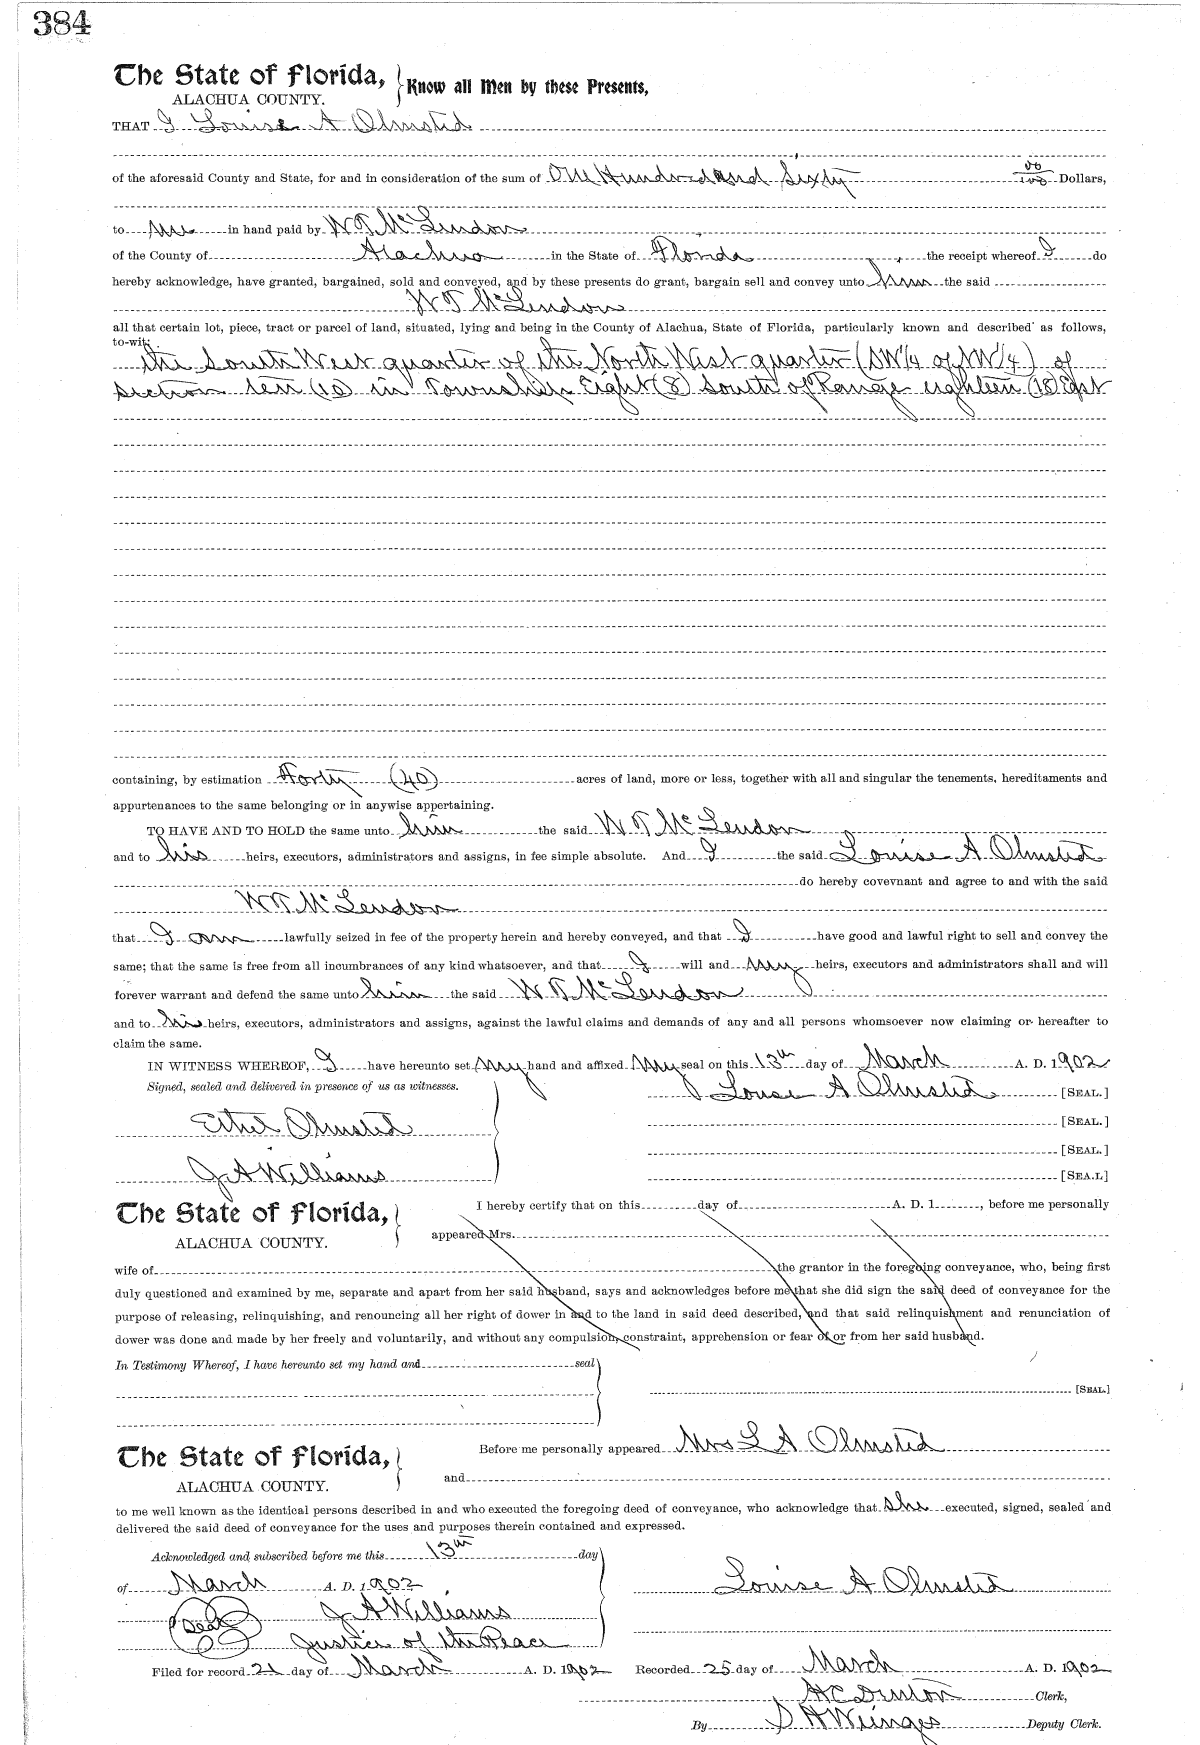 384
The State of Florida, Know all Men by these Presents,
ALACHUA COUNTY.
THAT I Louise A Olmsted
of the aforesaid County and State, for and in consideration of the sum of One Hundred and Sixty 00/100 Dollars,
to me in hand paid by W T McLendon
of the County of Alachua in the State of Florida , the receipt whereof I do
hereby acknowledge, have granted, bargained, sold and conveyed, and by these presents do grant, bargain sell and convey unto him the said
W T McLendon
all that certain lot, piece, tract or parcel of land, situated, lying and being in the County of Alachua, State of Florida, particularly known and described as follows,
to-wit:
the South West quarter of the North West quarter (SW/4 of NW/4) of
section ten (10) in Township Eight (8) South of Range eighteen (18) East
containing, by estimation Forty (40) acres of land, more or less, together with all and singular the tenements, hereditaments and
appurtenances to the same belonging or in anywise appertaining.
TO HAVE AND TO HOLD the same unto him the said W T McLendon
and to his heirs, executors, administrators and assigns, in fee simple absolute. And I the said Louise A Olmsted
do hereby covevnant and agree to and with the said
W T McLendon
that I am lawfully seized in fee of the property herein and hereby conveyed, and that I have good and lawful right to sell and convey the
same; that the same is free from all incumbrances of any kind whatsoever, and that I will and my heirs, executors and administrators shall and will
forever warrant and defend the same unto him the said W T McLendon
and to his heirs, executors, administrators and assigns, against the lawful claims and demands of any and all persons whomsoever now claiming or hereafter to
claim the same.
IN WITNESS WHEREOF, I have hereunto set my hand and affixed my seal on this 13th day of March A. D. 1902
Signed, sealed and delivered in presence of us as witnesses.
Louise A Olmsted [SEAL.]
Ethel Olmsted [SEAL.]
[SEAL.]
J A Williams [SEAL]
The State of Florida, I hereby certify that on this day of A. D. 1 , before me personally
ALACHUA COUNTY. appeared Mrs.
wife of the grantor in the foregoing conveyance, who, being first
duly questioned and examined by me, separate and apart from her said husband, says and acknowledges before me that she did sign the said deed of conveyance for the
purpose of releasing, relinquishing, and renouncing all her right of dower in and to the land in said deed described, and that said relinquishment and renunciation of
dower was done and made by her freely and voluntarily, and without any compulsion, constraint, apprehension or fear of or from her said husband.
In Testimony Whereof, I have hereunto set my hand and seal
[SEAL.]
The State of Florida, Before me personally appeared Mrs L A Olmsted
ALACHUA COUNTY. and
to me well known as the identical persons described in and who executed the foregoing deed of conveyance, who acknowledge that she executed, signed, sealed and
delivered the said deed of conveyance for the uses and purposes therein contained and expressed.
Acknowledged and subscribed before me this 13th day
of March A. D. 1902 Louise A Olmsted
Seal J A Williams
Justice of the Peace
Filed for record 21 day of March A. D. 1902 Recorded 25 day of March A. D. 1902
H C Denton Clerk,
By S H Wienges Deputy Clerk.